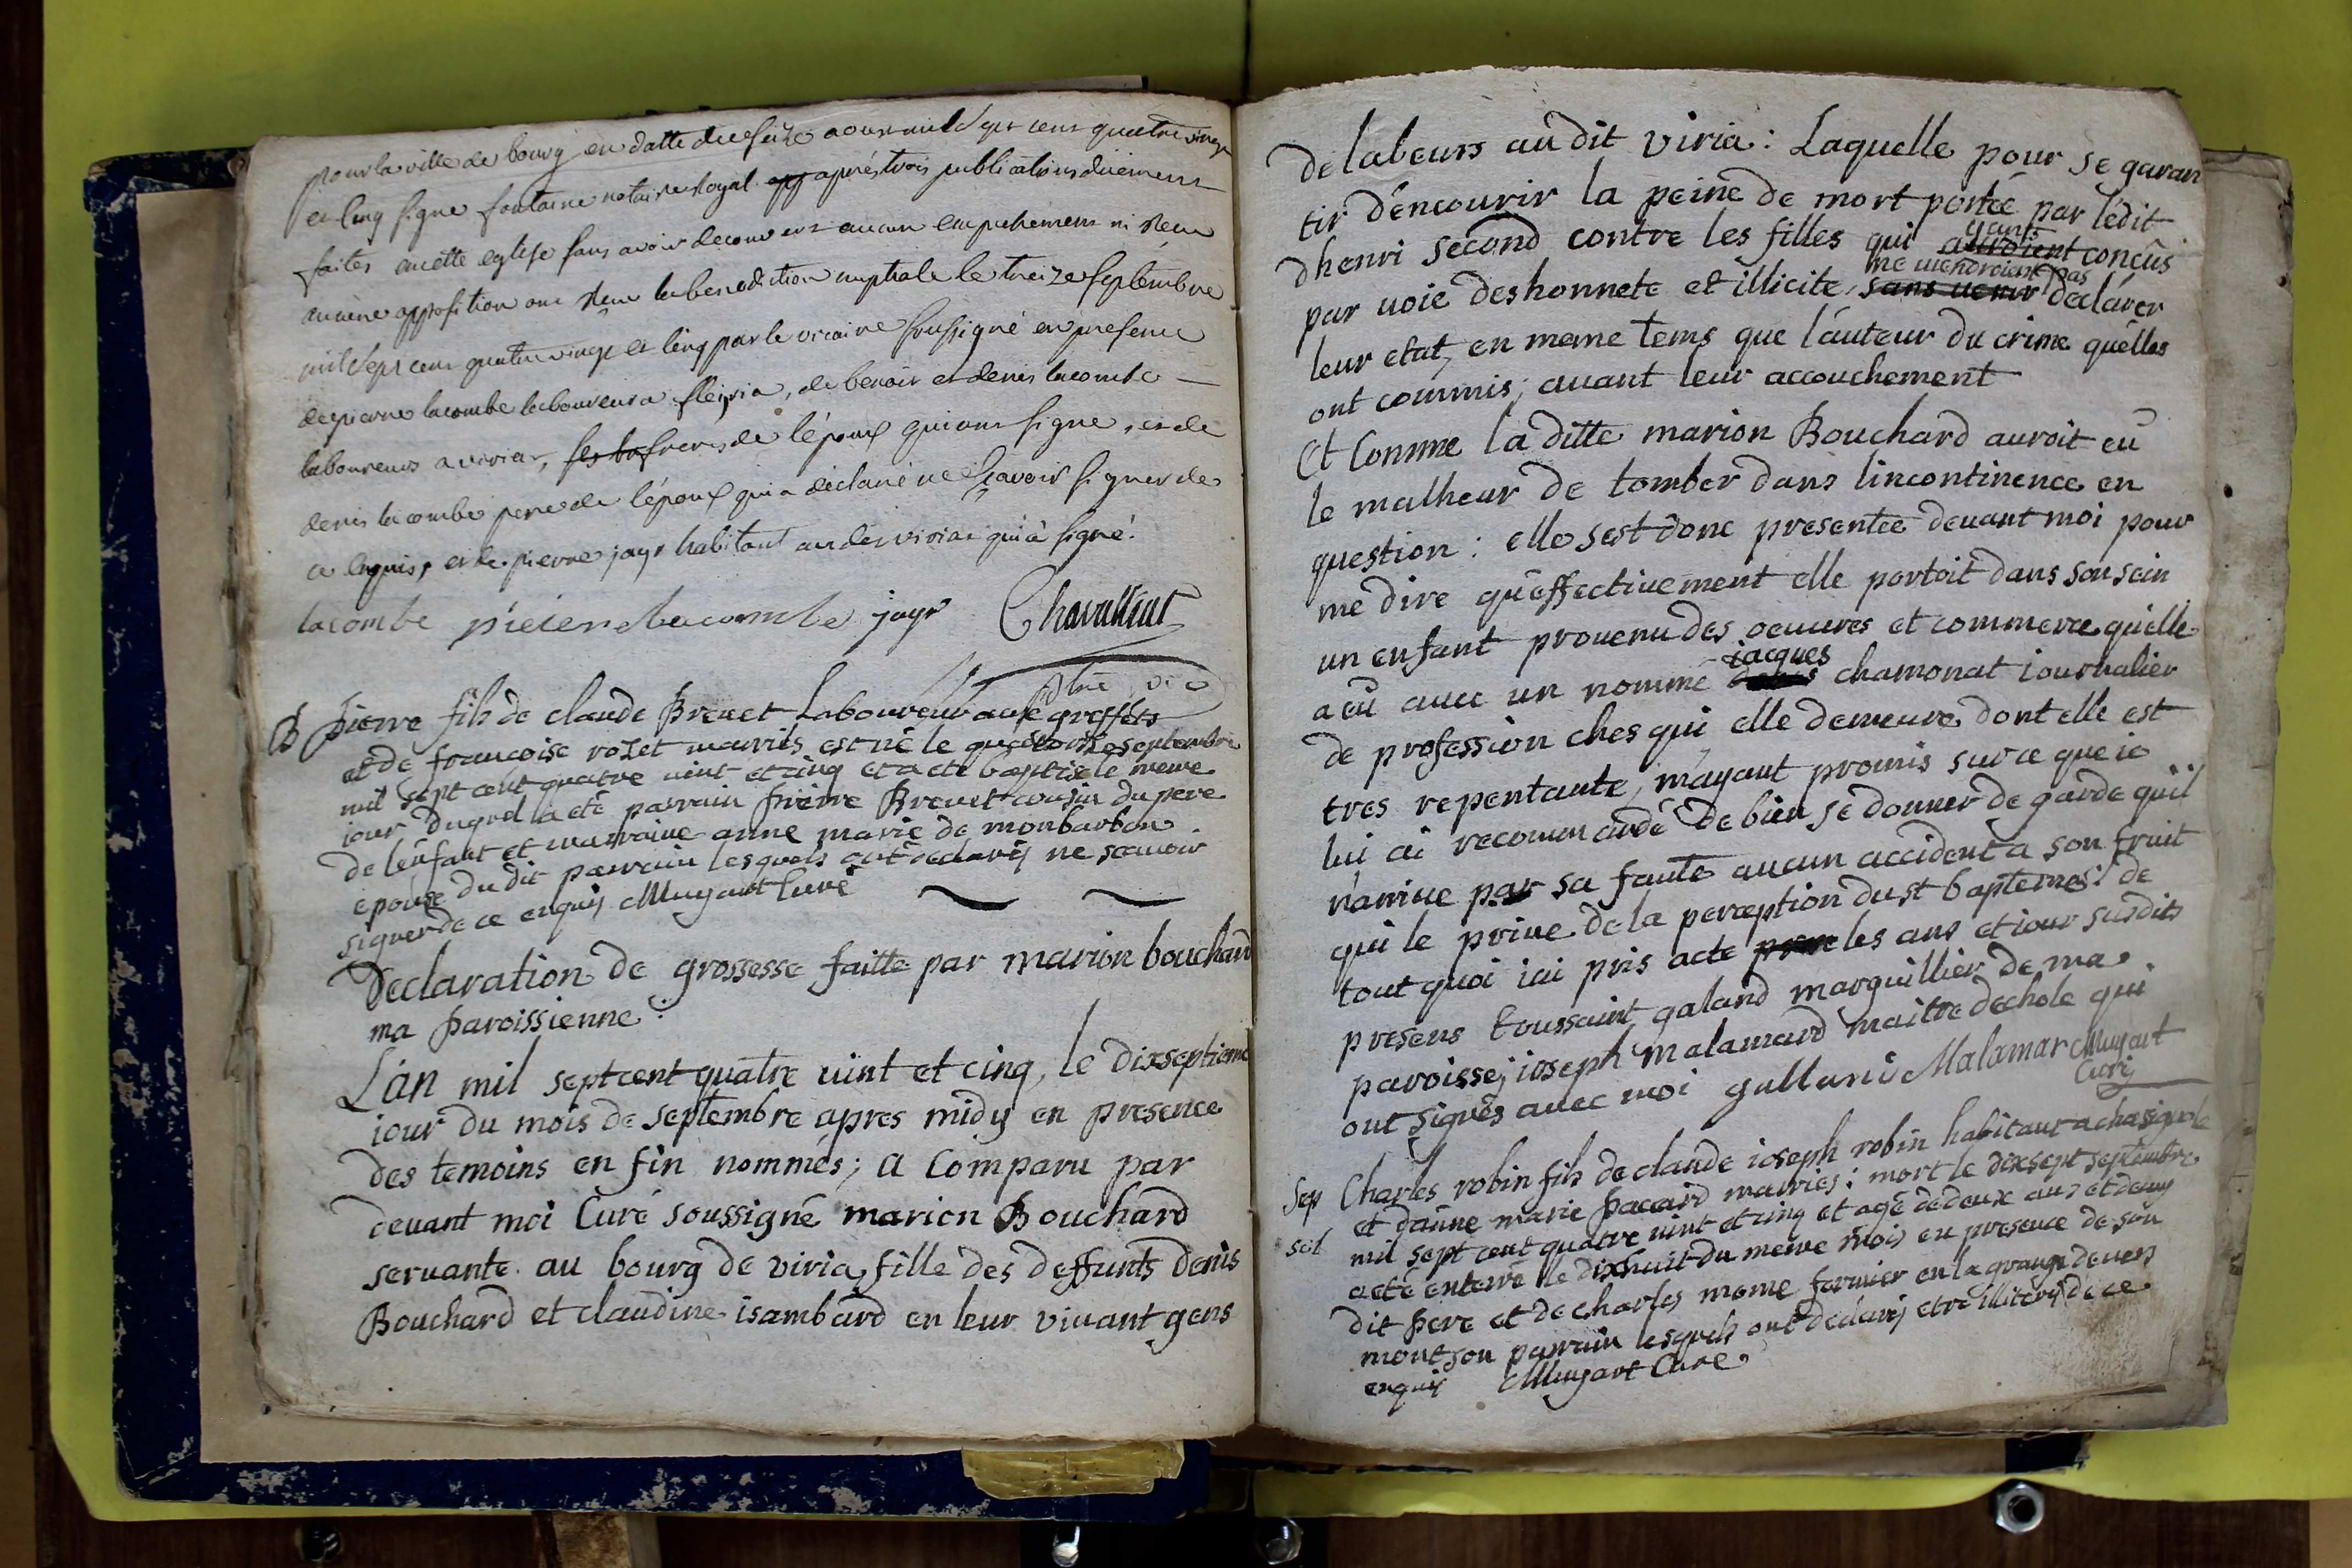 pour la ville de bourg en datte du seize aoust mil sept cens quatre vingt
et cinq signe fontaine notaire royal app après trois publications duement
faites en cette eglise sans avoir decouvert aucun empechement ni reçu
aucune opposition ont reçu la benediction nuptiale le treize septembre
mil sept cens quatre vingt et cinq par le vicaire soussigné en presence
de pierre lacombe laboureur a fleiria, de benoit et denis lacombe
laboureurs a viriat, ses frères de l'époux qui ont signe, et de
denis lacombe pere de l'époux qui a déclaré ne sçavoir signer de
ce enquis, et de pierre jayr habitant au dit viriat qui à signé.
lacombe pieier lacombe jayr
B pierre fils de claude Brevet Laboureur aux greffets
et de francoise rozet mariés est né le quatorze septembre
mil sept cent quatre vint et cinq et a eté baptisé le meme
iour duquel a eté parrain pierre Brevet cousin du pere
de l'enfant et marraine anne marie de monbarbon
epouse du dit parrain lesquels ont declarés ne scavoir
signer de ce enquis Muyart Curé
Declaration de grossesse faitte par marion bouchard
ma paroissienne:
L'an mil sept cent quatre vint et cinq, le dixseptieme
iour du mois de septembre apres midy en presence
des temoins en fin nommés; a Comparu par
devant moi Curé soussigné marion Bouchard
servante au bourg de viria, fille des deffunts denis
Bouchard et claudine isambard en leur vivant gens
de labeurs au dit viria: Laquelle pour se garan
tir d'encourir la peine de mort portée par l'édit
d'henri second contre les filles qui auroient ayants concûs
par voie deshonnete et illicite, sans venir me viendroient pas declárer
leur etat, en meme tems que l'áuteur du crime qu'elles
ont commis; avant leur accouchement
Et Comme la ditte marion Bouchard auroit eû
le malheur de tomber dans lincontinence en
question: elle s'est donc presentée devant moi pour
me dire qu'effectivement elle portoit dans son sein
un enfant provenu des oeuvres et commerce qu'elle
a eû avec un nommé jacques chamonat iournalier
de profession ches qui elle demeure dont elle est
tres repentante, m'ayant promis sur ce que ie
lui ai recommandé de bien se donner de garde qu'il
n'arrive par sa faute aucun accident a son fruit
qui le prive de la perception du st baptemes: de
tout quoi iai pris acte les ans et iour susdits
presens toussaint galand marguillier de ma
paroisse, ioseph malamard maitre dechole qui
ont signés avec moi galland Malamar Muyart
Curé
Sep Charles robin fils de claude ioseph robin habitant a chasignole
et d'anne marie pacard mariés: mort le dixsept septembre
mil sept cent quatre vint et cinq et agé de deux ans et demy
a eté enterré le dixhuit du meme mois en presence de son
dit pere et de charles mome fermier en la grange devers
mont son parrain lesquels ont declarés etre illiterés de ce
enquis Muyart Curé